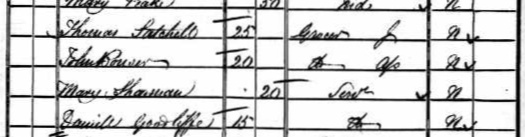 Mary 50 Ind N
Thomas Satchell 25 Grocer J N
John 20 Do Ap N
Mary Sharman 20 Serv N
Daniell Goodliffe 15 Do N